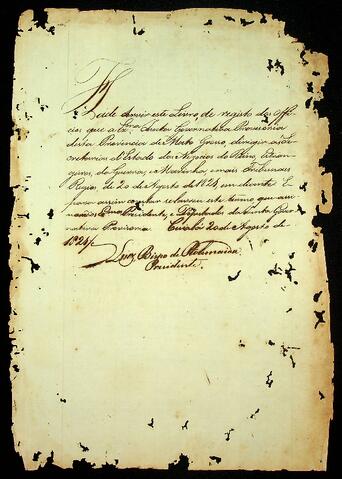 Hade servir este Livro de registo dos offi
cios que a Exma Junta Governativa Provisoria
desta Provincia de Mato Groso, dirigir as Se
cretarias d'Estado dos Negocios do Reino, Estran
geiros, da Guerra, e Marinha, e mais Tribunaes
Regios de 20 de Agosto de 1821, em deante. E
para assim constar se lavrou este termo que assi
nou o Presidente, e Deputados da Junta Gover
nativa Provisoria. Cuiabá 20 de Agosto de
1821
Luiz Bispo de Ptolomaida
Presidente